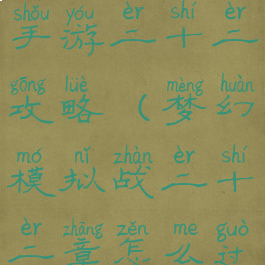 shǒu yóu èr shí èr
手游二十二
gōng lüè mèng huàn
攻略（梦幻
mó nǐ zhàn èr shí
模拟战二十
èr zhāng zěn me guò
二章怎么过